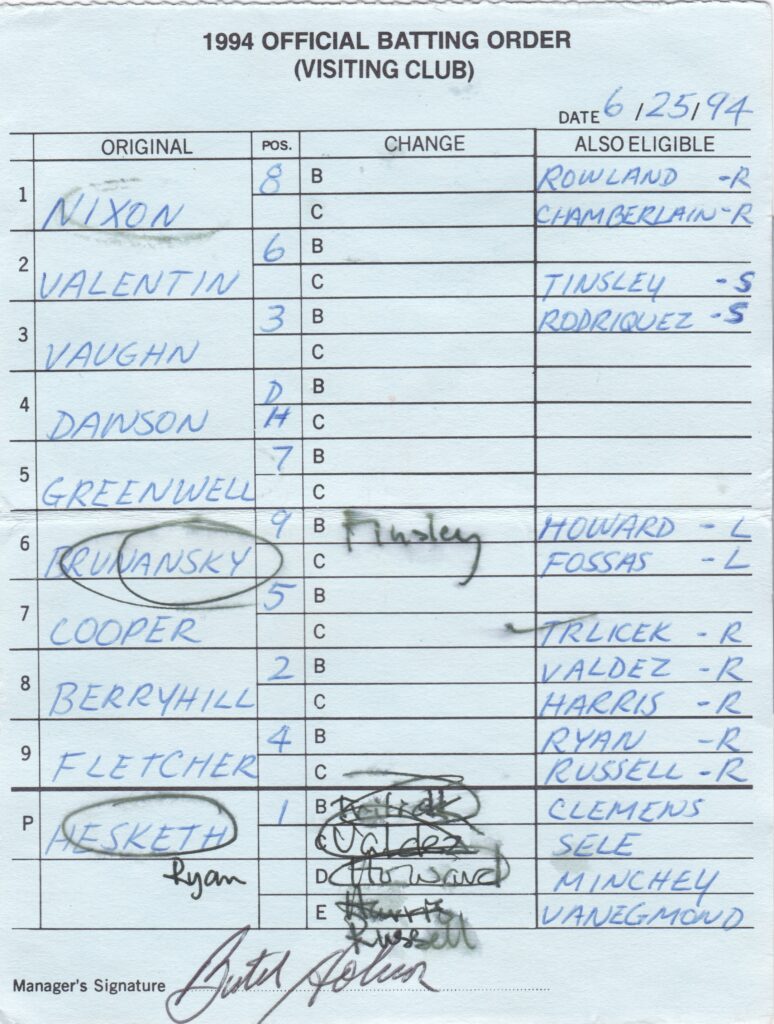 1994 OFFICIAL BATTING ORDER
(VISITING CLUB)
DATE 6/25/94
ORIGINAL POS. CHANGE ALSO ELIGIBLE
1 NIXON 8 B ROWLAND -R
C CHAMBERLAIN -R
2 VALENTIN 6 B
C TINSLEY -S
3 VAUGHN 3 B RODRIQUEZ -S
C
4 DAWSON DH B
C
5 GREENWELL 7 B
C
6 BRUNANSKY 9 B Tinsley HOWARD - L
C FOSSAS - L
7 COOPER 5 B
C TRLICEK - R
8 BERRYHILL 2 B VALDEZ - R
C HARRIS - R
9 FLETCHER 4 B RYAN - R
C RUSSELL - R
P HESKETH 1 B Trlicek CLEMENS
C Valdez SELE
Ryan D Howard MINCHEY
E Harris VANEGMOND
Russell
Manager's Signature